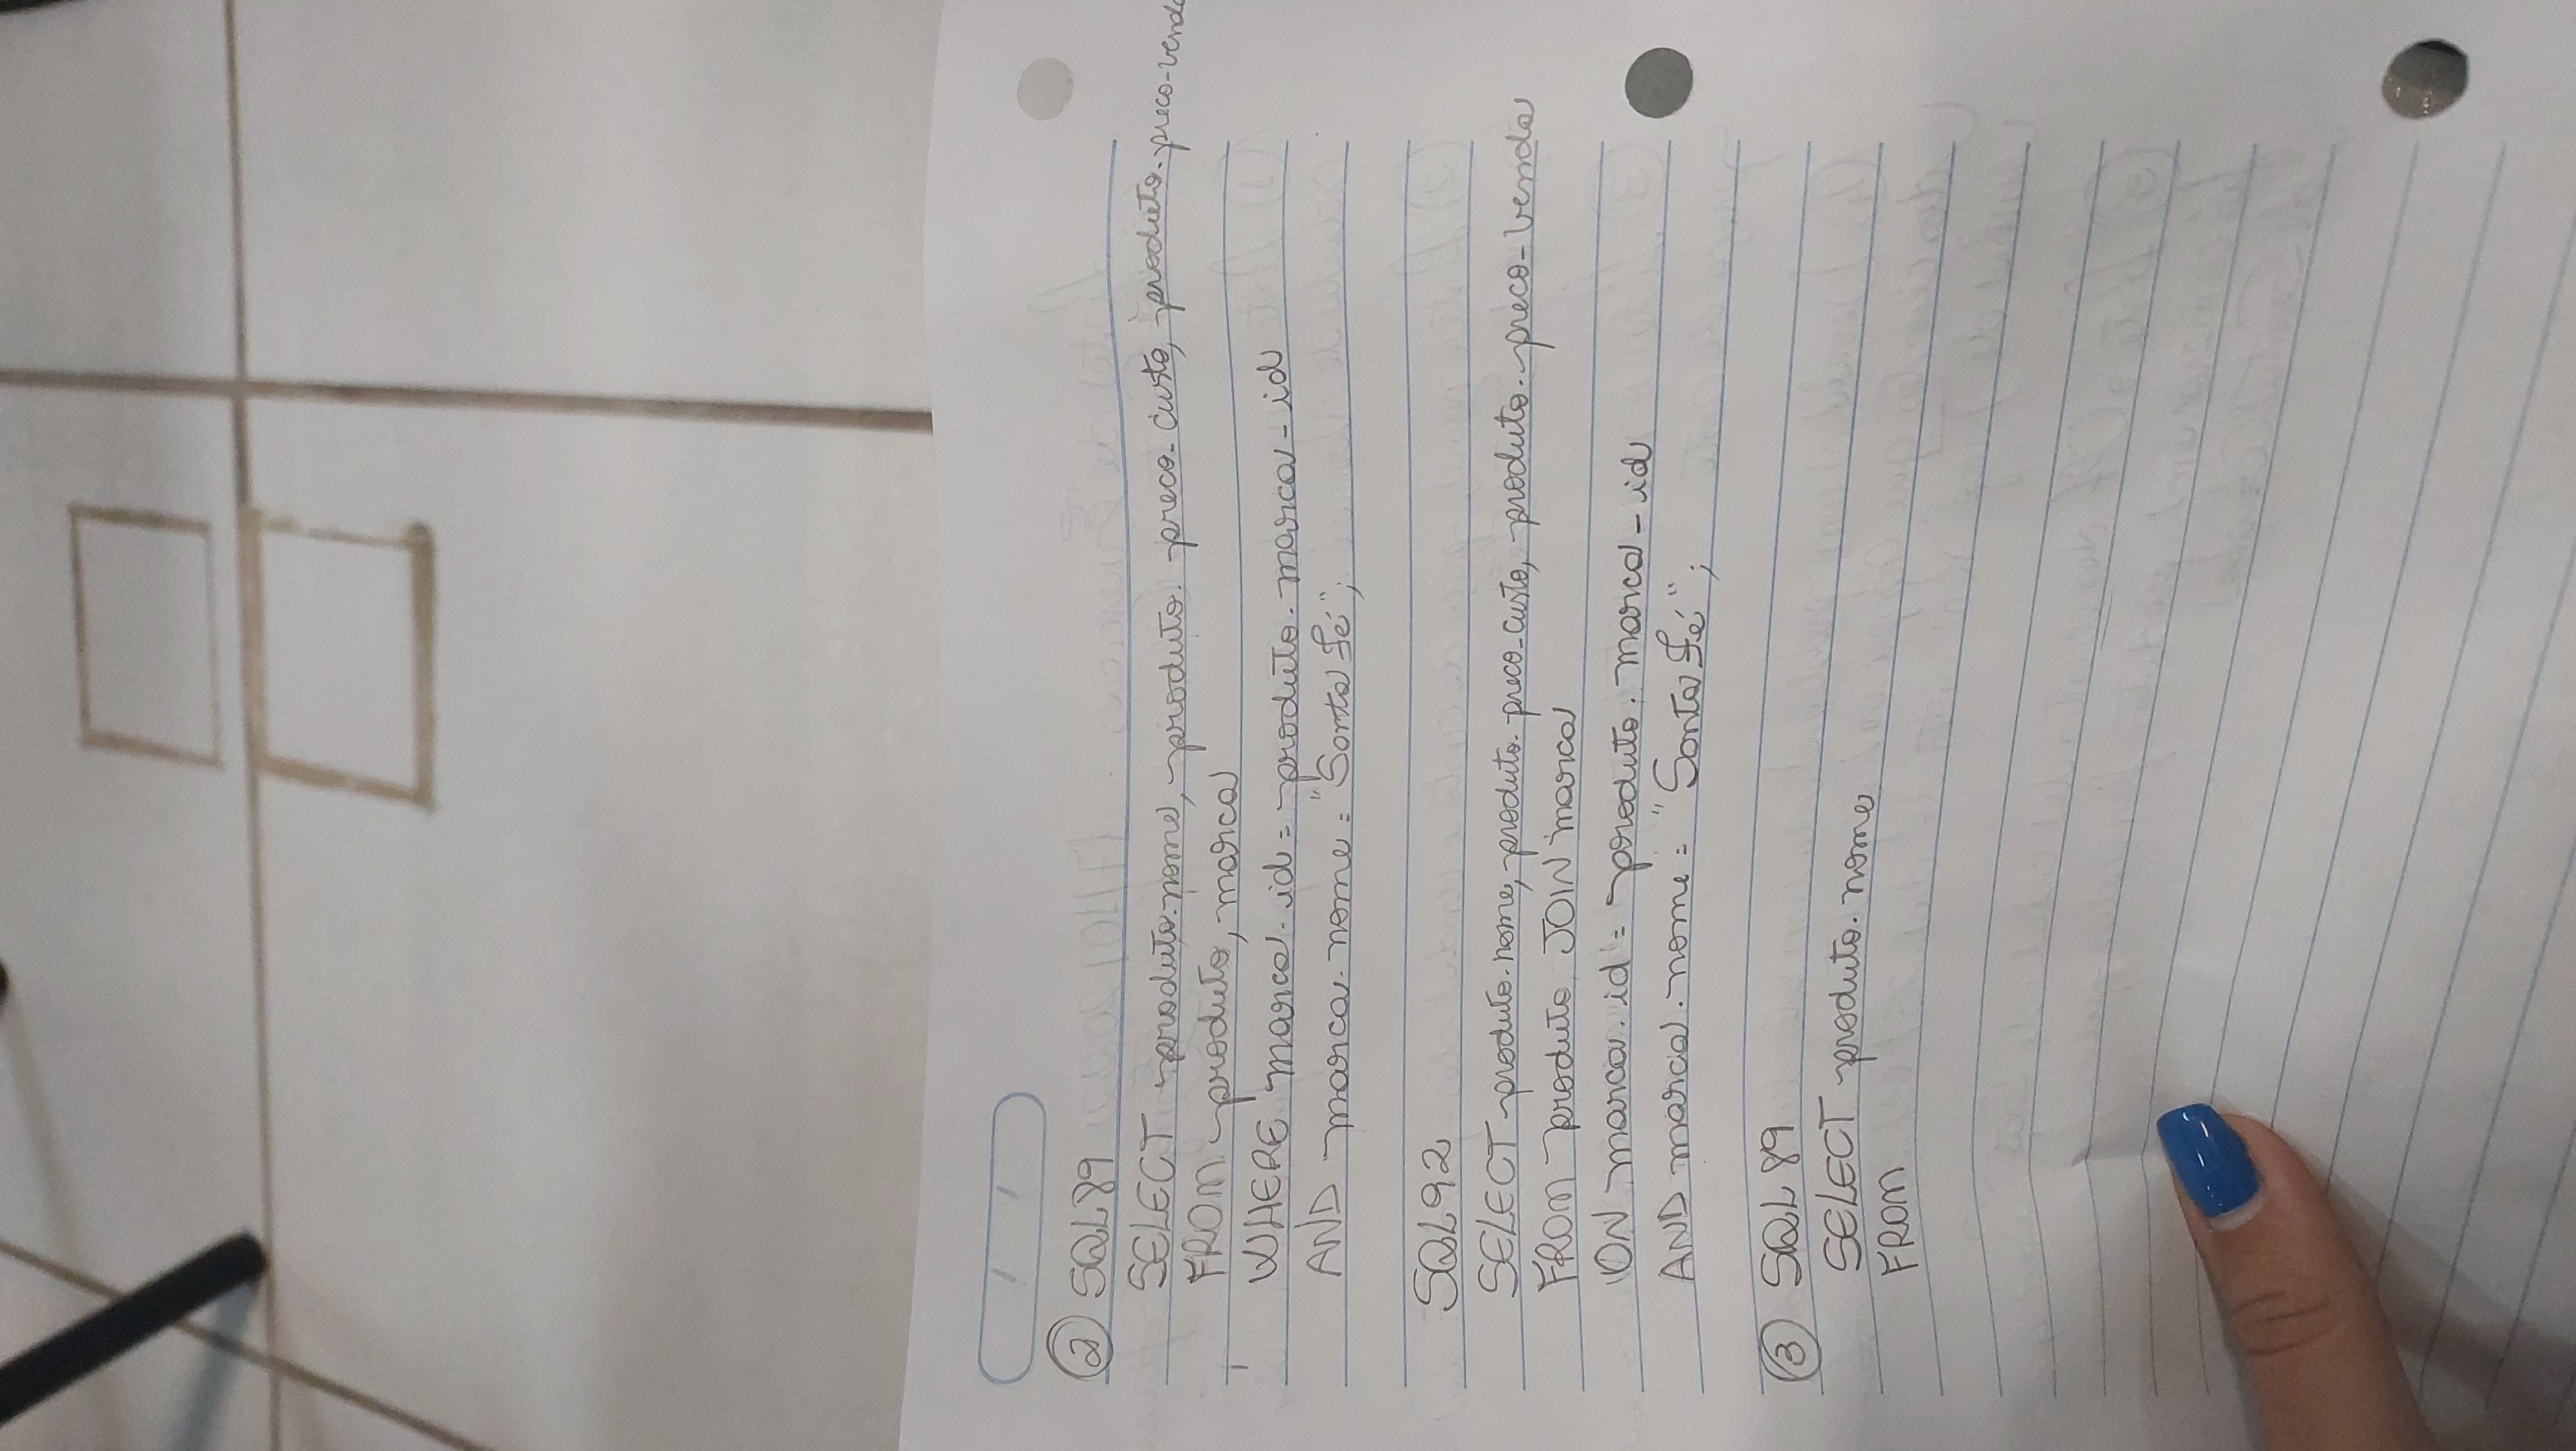 2 SQL89
SELECT produto.nome, produto.preco_custo, produto.preco_venda
FROM produto, marca
WHERE marca.id = produto.marca_id
AND marca.nome = "Santa Fé";
SQL92
SELECT produto.nome, produto.preco_custo, produto.preco_venda
FROM produto JOIN marca
ON marca.id = produto.marca_id
AND marca.nome = "Santa Fé";
3 SQL89
SELECT produto.nome
FROM